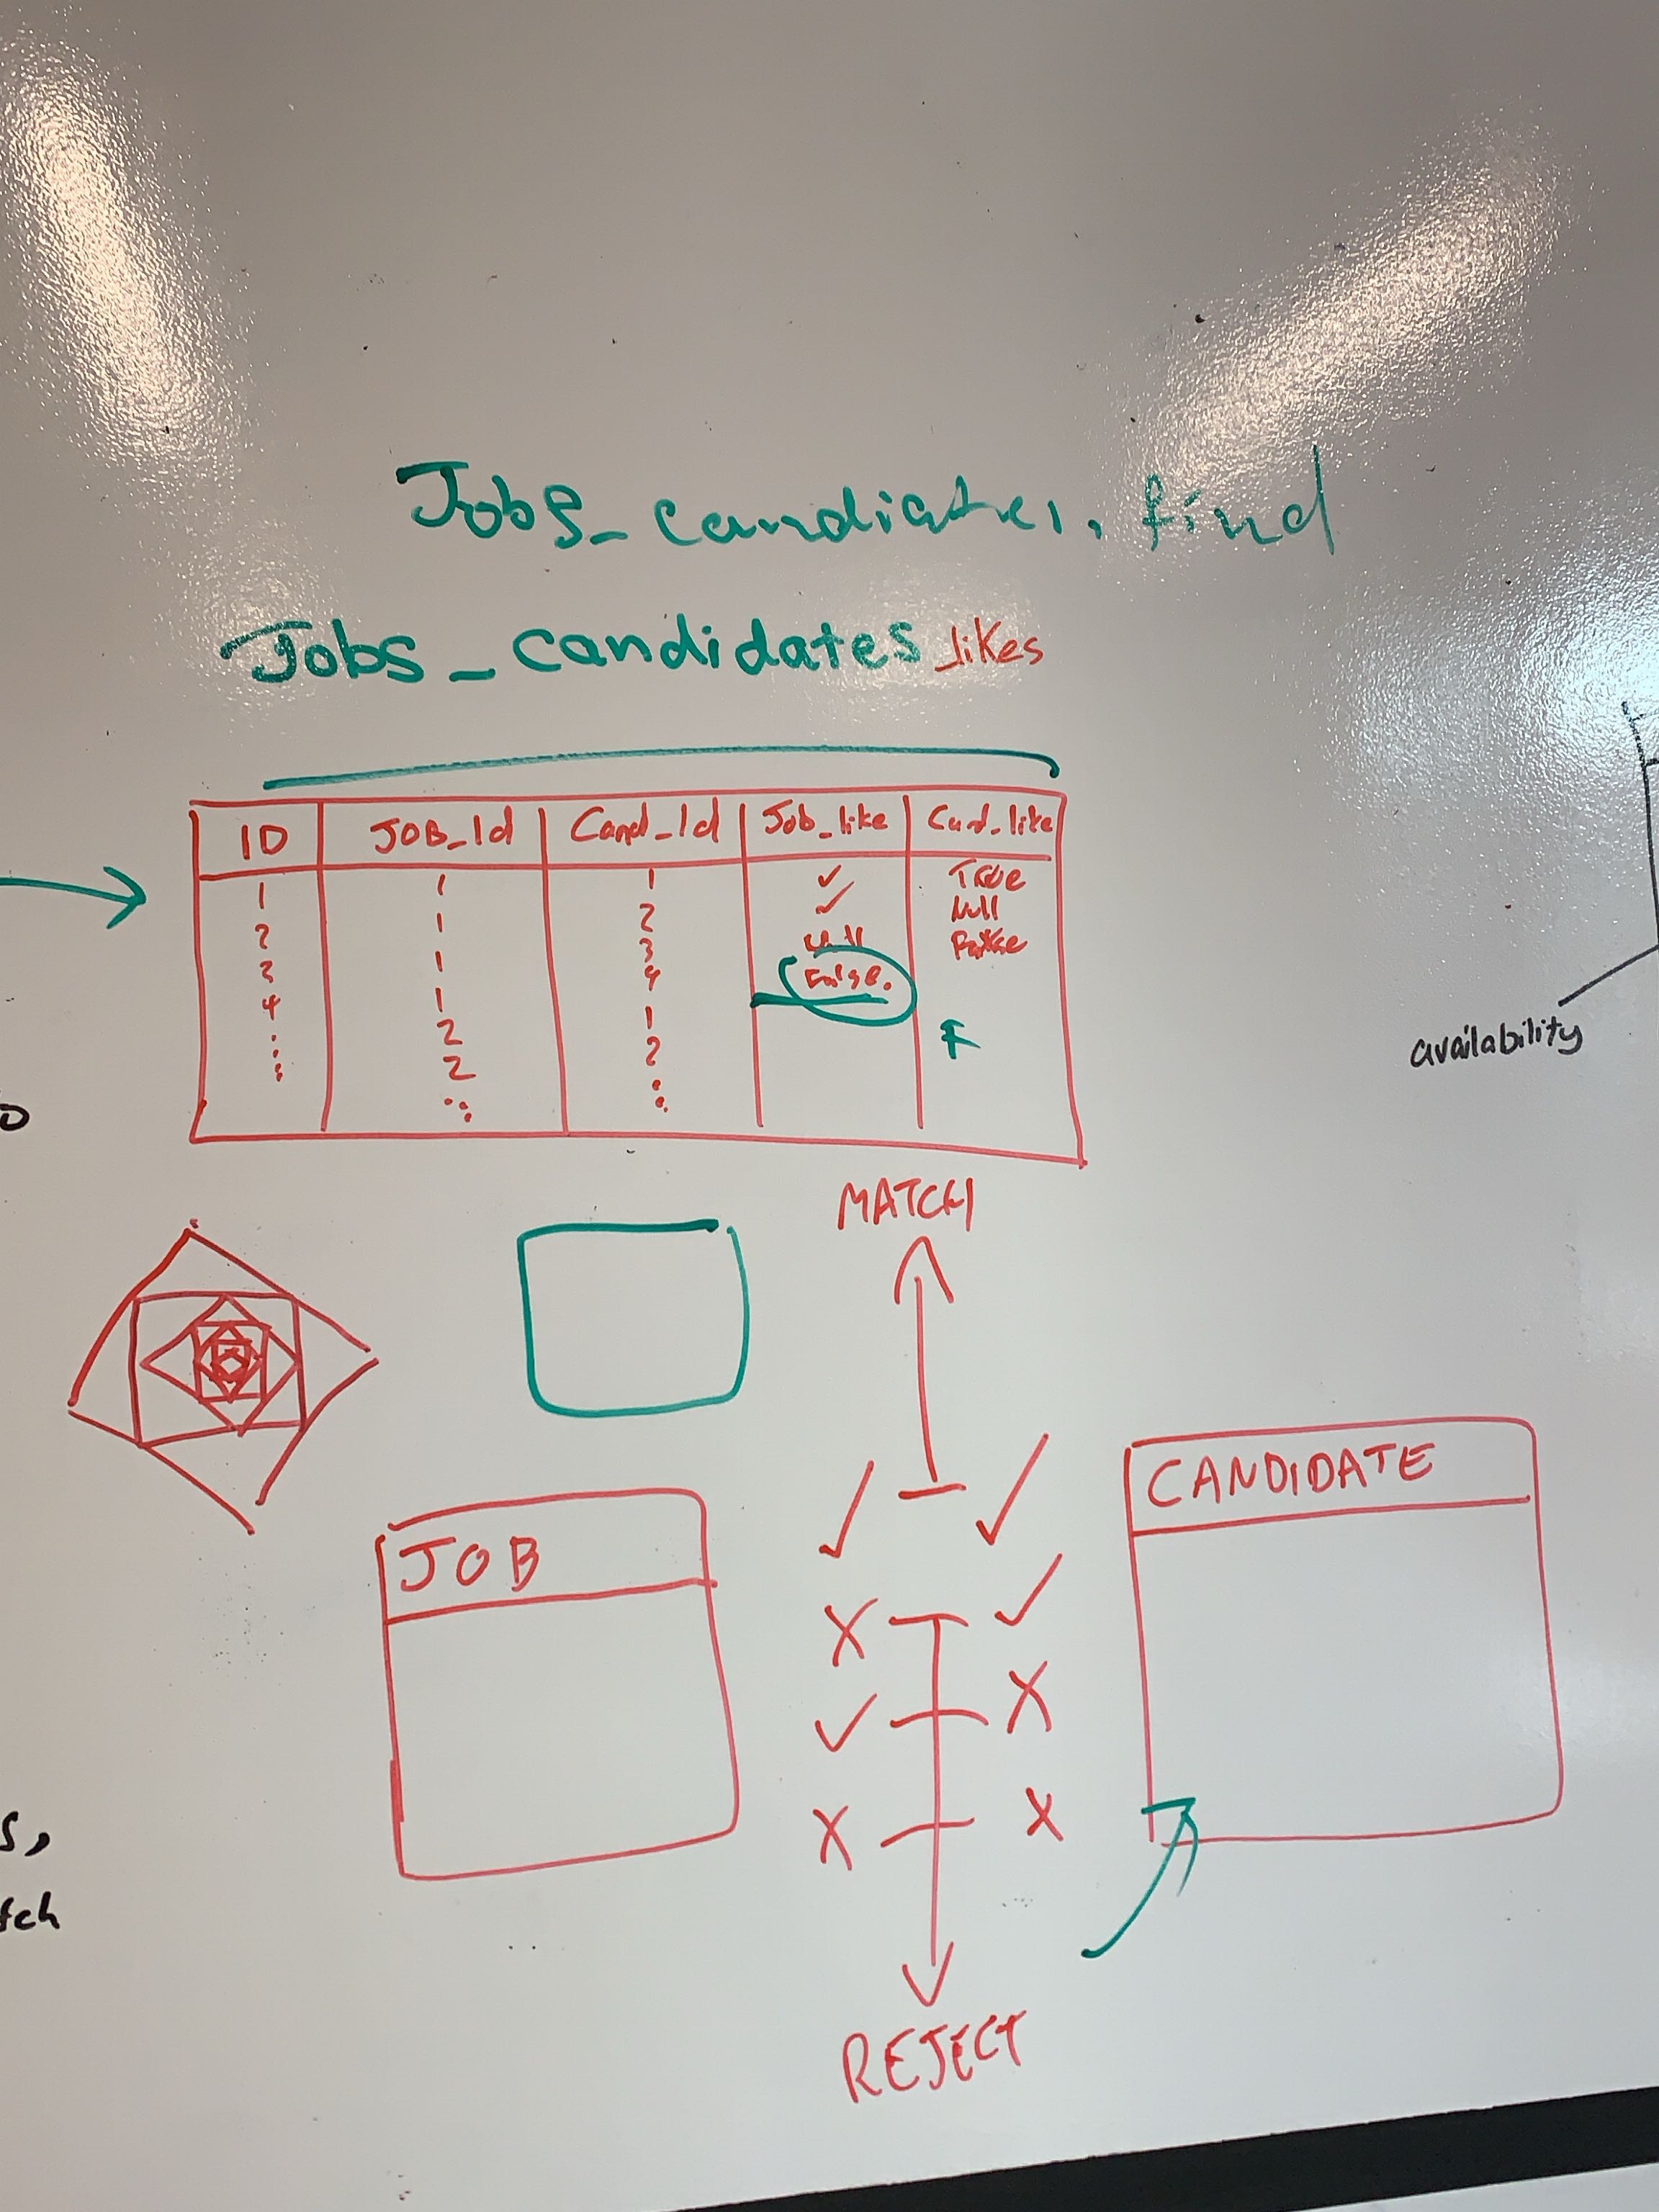 Jobs_candiates.find
Jobs_candidates_likes
ID JOB_Id Cand_Id Job_like Cand_like
1 1 1 ✓ True
2 1 2 ✓ Null
3 1 3 Null
4 1 4 False.
2 1 F
2 2
availability
MATCH
✓ ✓
JOB
CANDIDATE
X ✓
✓ X
X X
REJECT